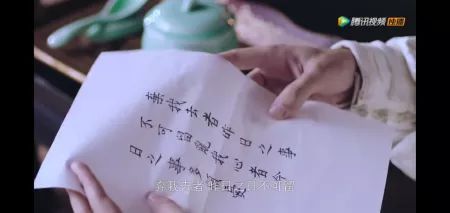 腾讯视频 独播
棄我去者昨日之事
不可留亂我心者今
日之事多煩憂
弃我去者 昨日之日不可留